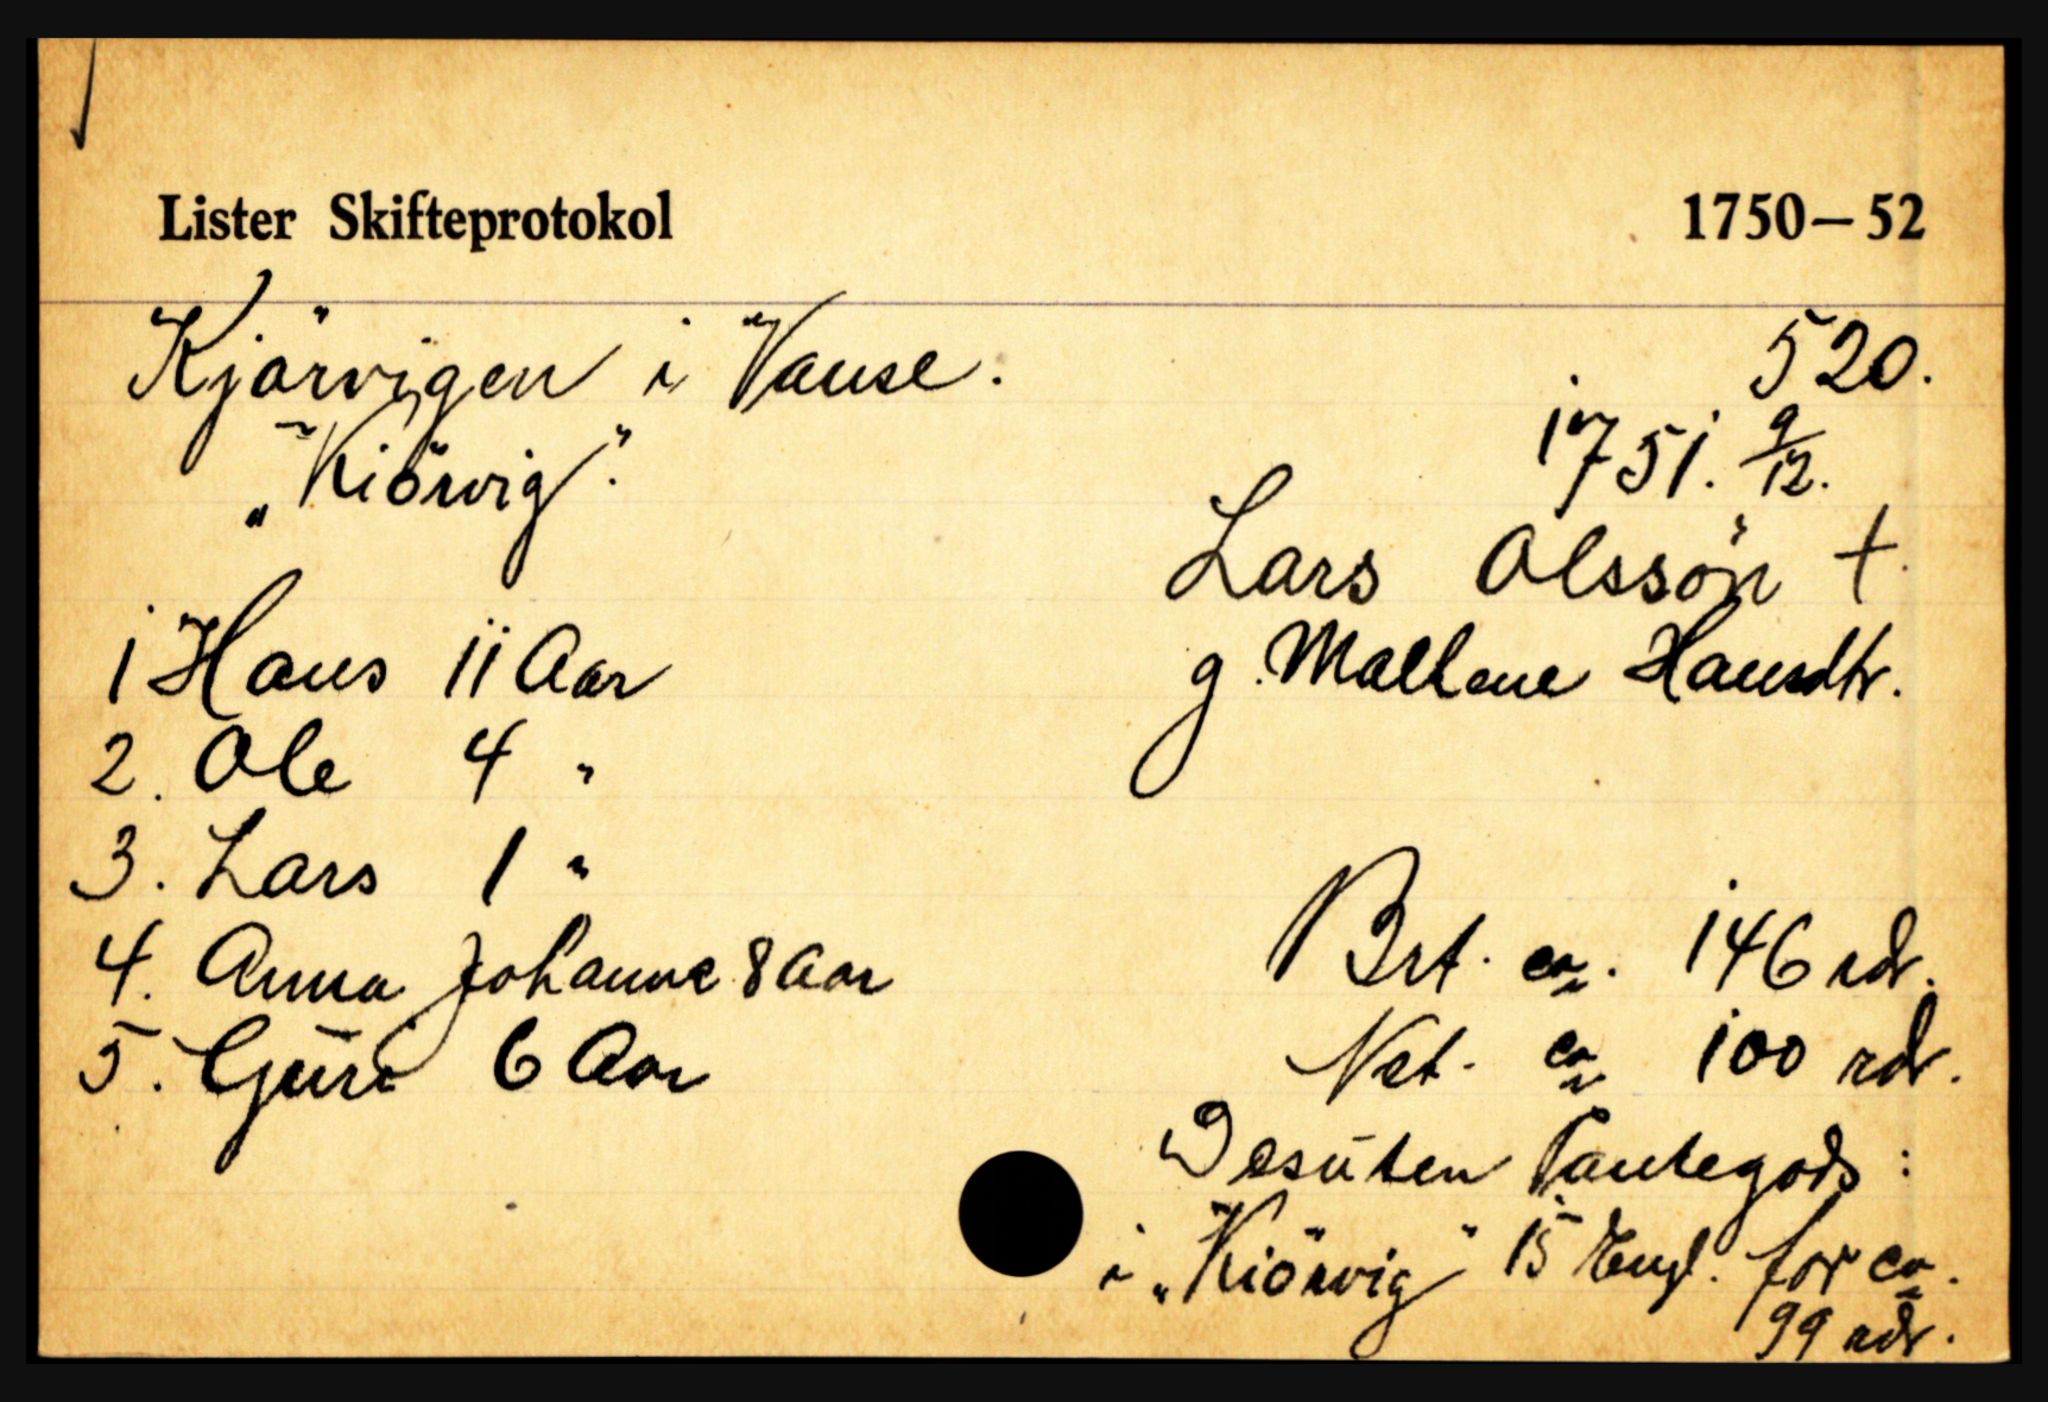 Lister Skifteprotokol 1750–52
Kjörvigen i Vanse. 520.
„Kiörvig". 1751. 9/12.
Lars Olssön †.
g. Mallene Hansdtr.
1 Hans 11 Aar
2. Ole 4 "
3. Lars 1 "
4. Anna Johanne 8 Aar
5. Guri 6 Aar
Brt. ca. 146 rdr.
Net. ca 100 rdr.
Desuten Pantegods:
i „Kiörvig" 15 Engl. for ca.
99 rdr.